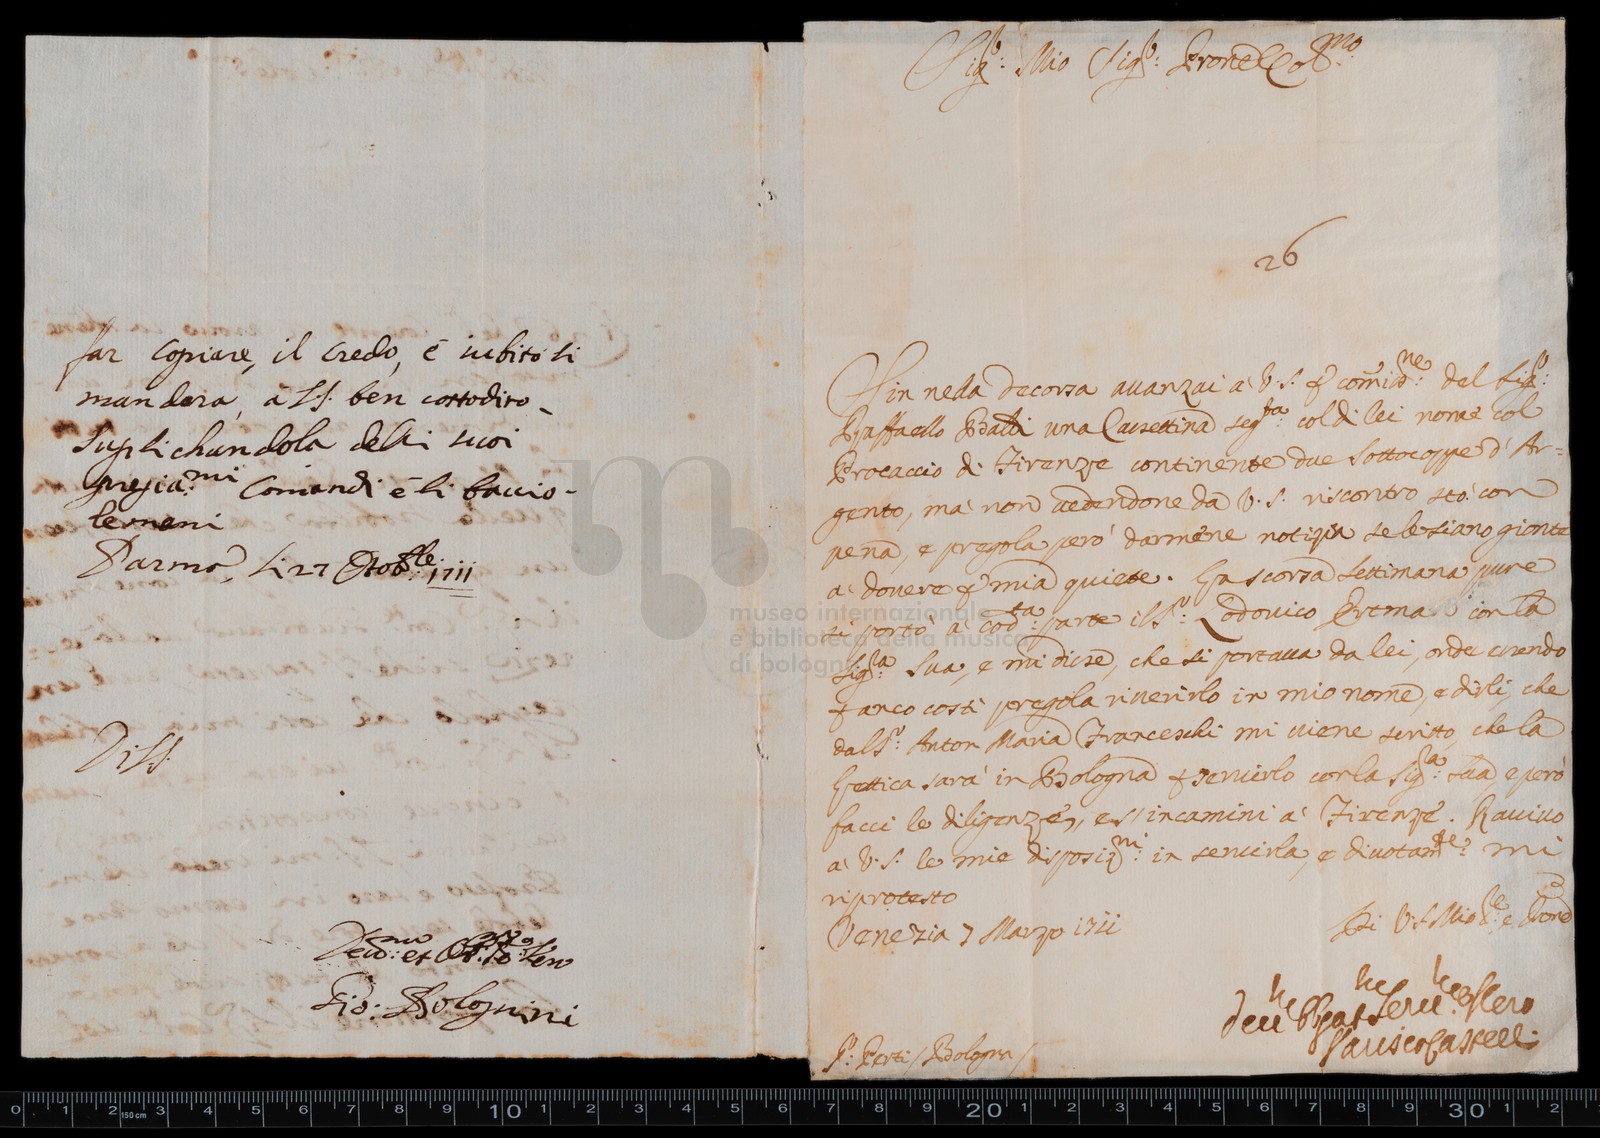 far copiare, il Credo, è subito si
mandera, à SS: ben costodito,
suplichandola delli suoi
pregia:mi Comandi è li baccio
le mani
Parma, li 27 Ottoble: 1711
Di SS:
Devo:mo et Oblo: Sero
Gio: Bolognini
Sigr: Mio Sigr: Prone Colmo:
26
Sin nella decorsa avanzai a V.S. p comisne: del Sigr:
Raffaello Baldi una Cassettina segta: col di lei nome col
Procaccio di Firenze continente due Sottocoppe d'Ar=
gento, ma non vedendone da V.S. riscontro stò con
pena, e pregola però darmene notizia se le siano gionte
a dovere p mia quiete. La scorsa settimana pure
si portò a codta: parte il Sr: Lodovico Erma con la
Sigra: Sua, e mi disse, che si portava da lei, onde essendo
p anco costì pregola riverirlo in mio nome, e dirli, che
dal Sr: Anton Maria Franceschi mi viene scritto, che la
Lettica sarà in Bologna p servirlo con la Sigra: Sua, e però
facci le diligenze, e s'incamini a Firenze. Ravivo
a V.S. le mie disposizni: in servirla, e divotamte: mi
riprotesto
Venezia 7 Marzo 1711
Di V.S. Mio Sre, e Prone
S: Perti / Bologna /